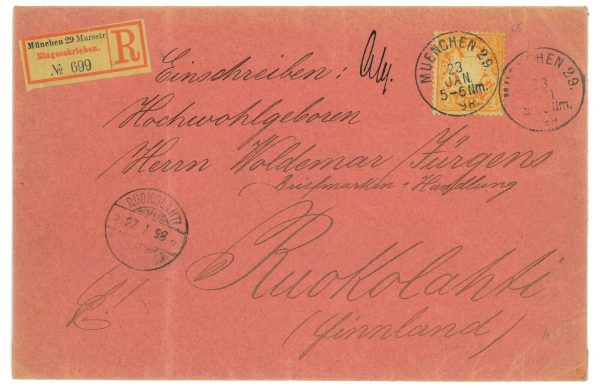 München 29 Marsstr.
Eingeschrieben.
№ 699
R
MUENCHEN 29.
23
JAN.
5-6 Nm.
98
MUENCHEN 29.
23
5-6 Nm.
98
Einschreiben:
Hochwohlgeboren
Herrn Woldemar Jürgens
Briefmarken-Handlung
Ruokolahti
(Finnland)
RUOKOLAHTI
27 1 98